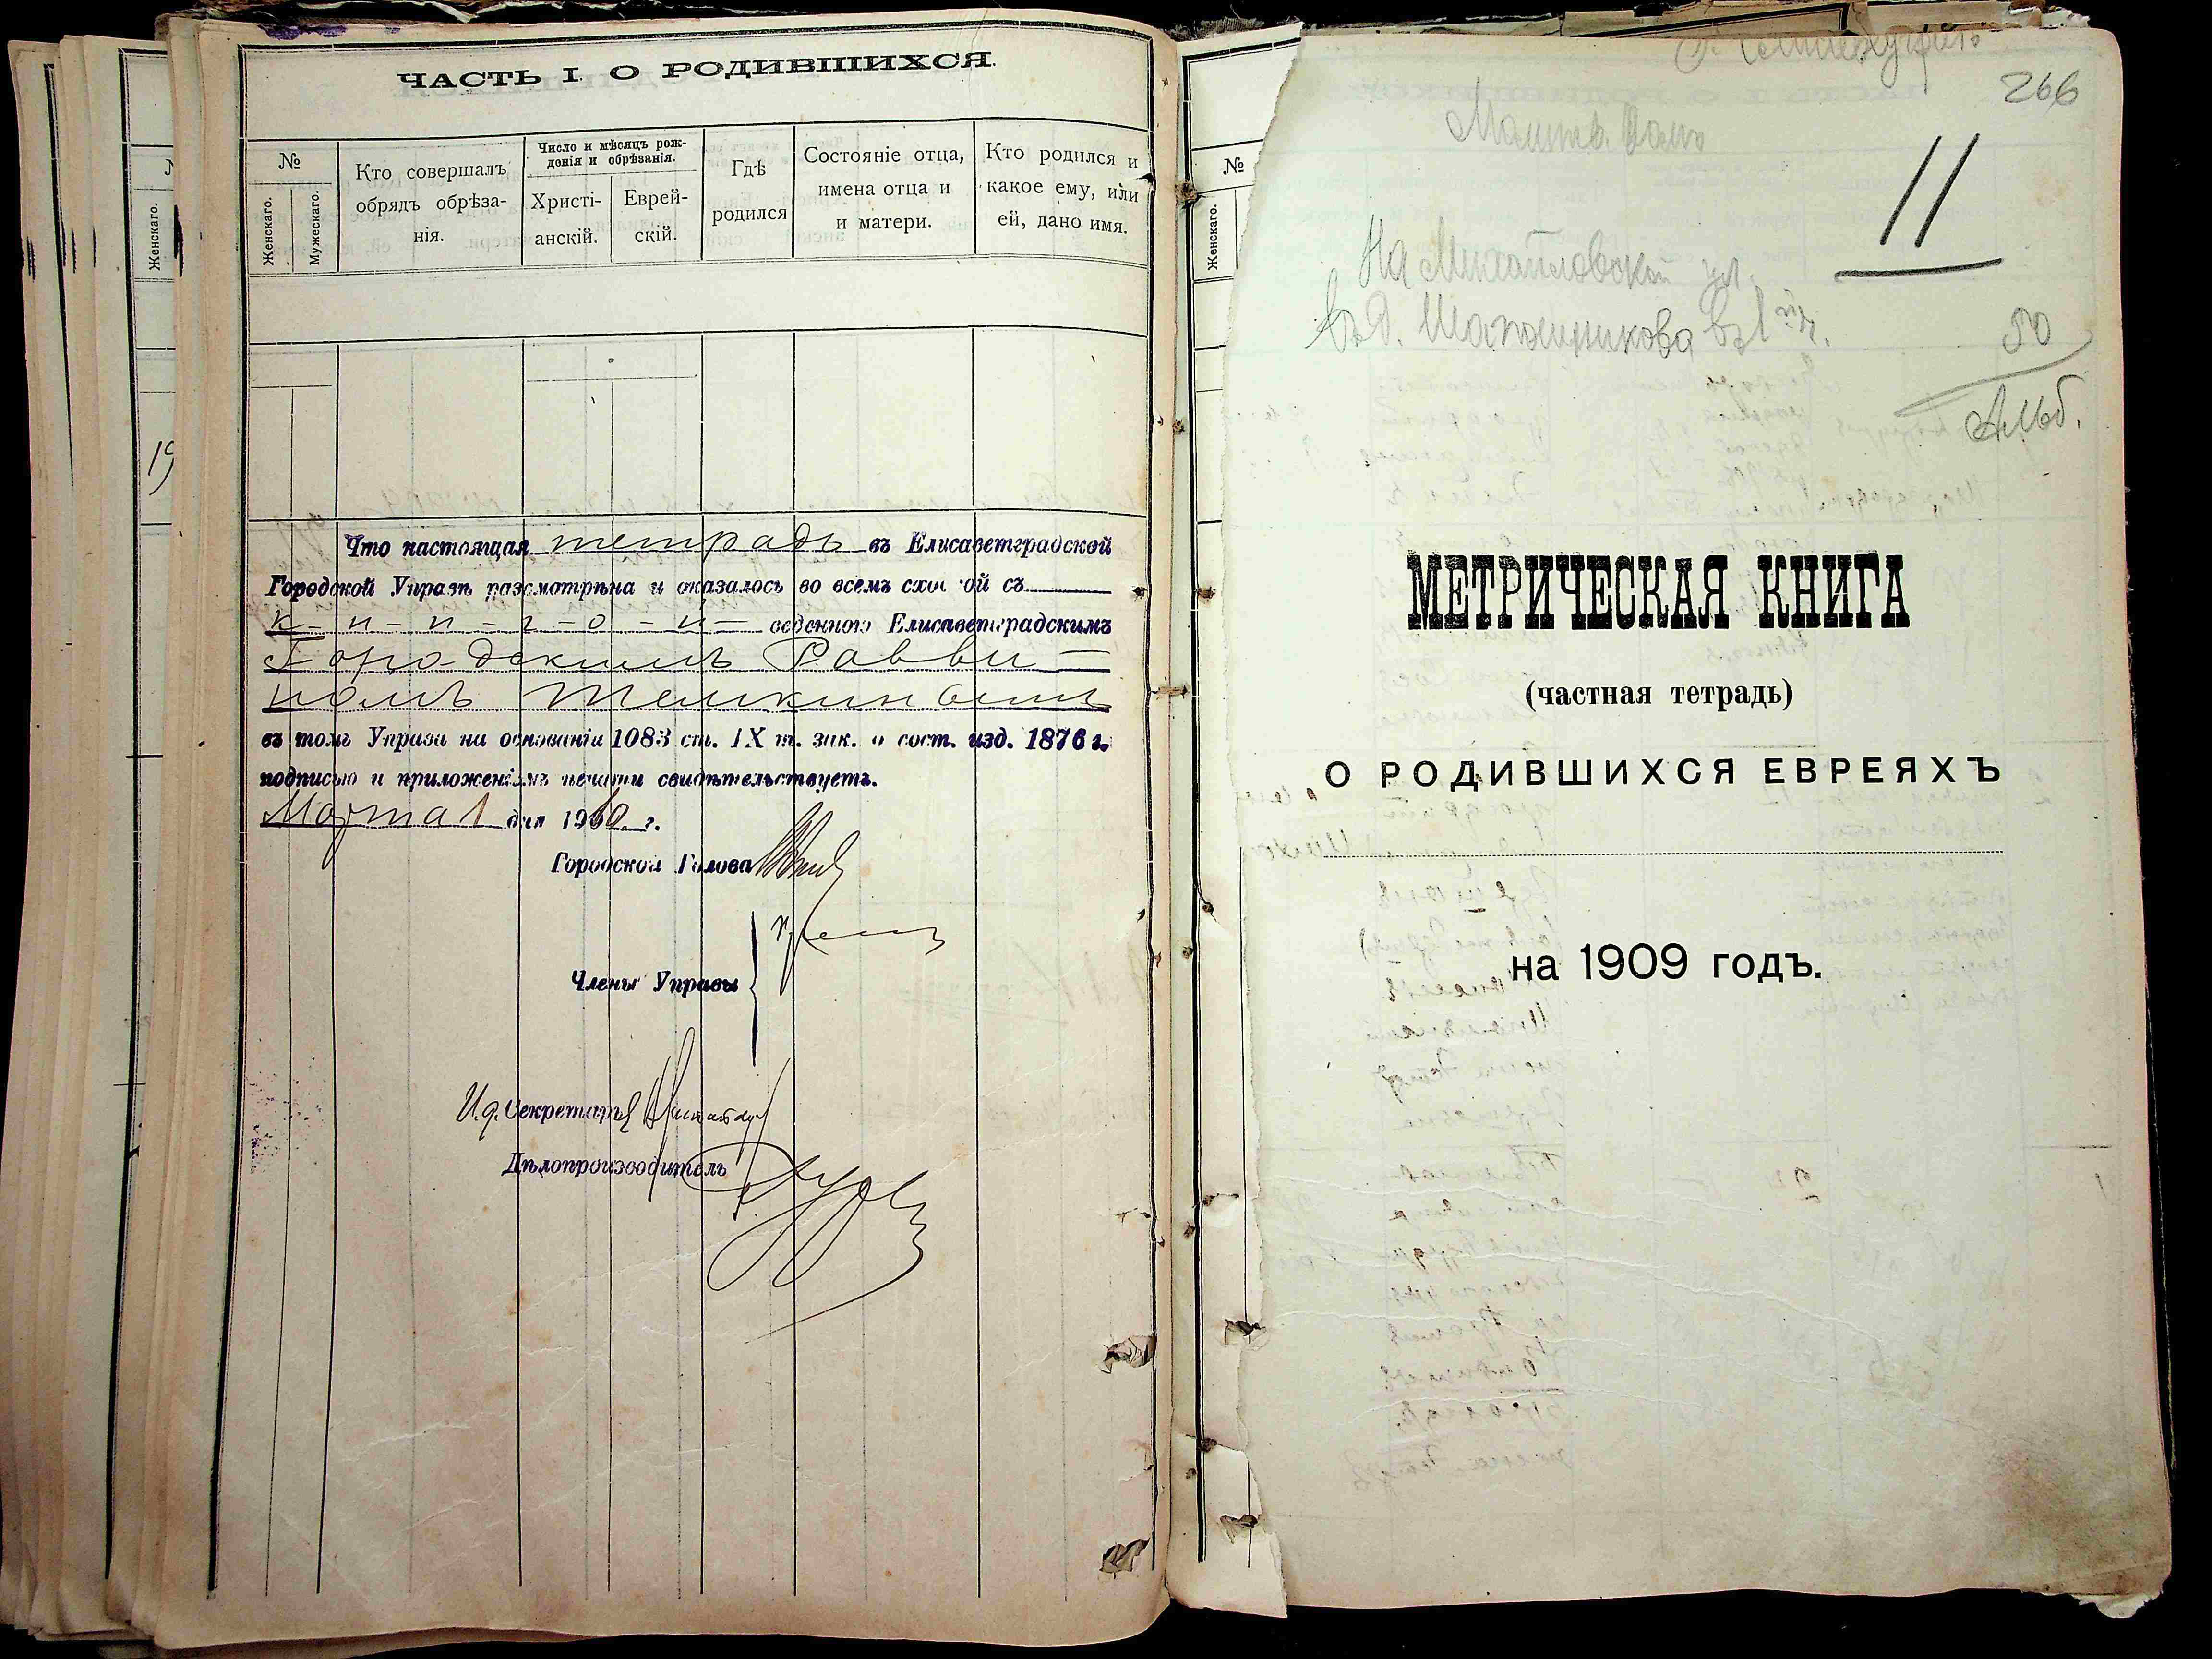 ЧАСТЬ I. О РОДИВШИХСЯ.
№
Женскаго.
Мужескаго.
Кто совершалъ
обрядъ обрѣза-
нія.
Число и мѣсяцъ рож-
денія и обрѣзанія.
Христі-
анскій.
Еврей-
скій.
Гдѣ
родился
Состояніе отца,
имена отца и
и матери.
Кто родился и
какое ему, или
ей, дано имя.
Что настоящая тетрадь въ Елисаветградской
Городской Управѣ разсмотрѣна и оказалось во всемъ схо ой съ
к-н-и-г-о-й- веденною Елисаветградскимъ
Городскимъ Равви-
номъ Темкинымъ
въ томъ Управа на основаніи 1083 ст. IX т. зак. о сост. изд. 1876 г.
подписью и приложеніемъ печати свидѣтельствуетъ.
Марта 1 дня 1910 г.
Городской Голова
Члены Управы
И.д. Секретаря
Дѣлопроизводитель
Женскаго.
19
№
Женскаго.
266
11
На Михайловской ул.
въ д. Шапошникова въ 1й ч.
50
Альб.
МЕТРИЧЕСКАЯ КНИГА
(частная тетрадь)
О РОДИВШИХСЯ ЕВРЕЯХЪ
на 1909 годъ.